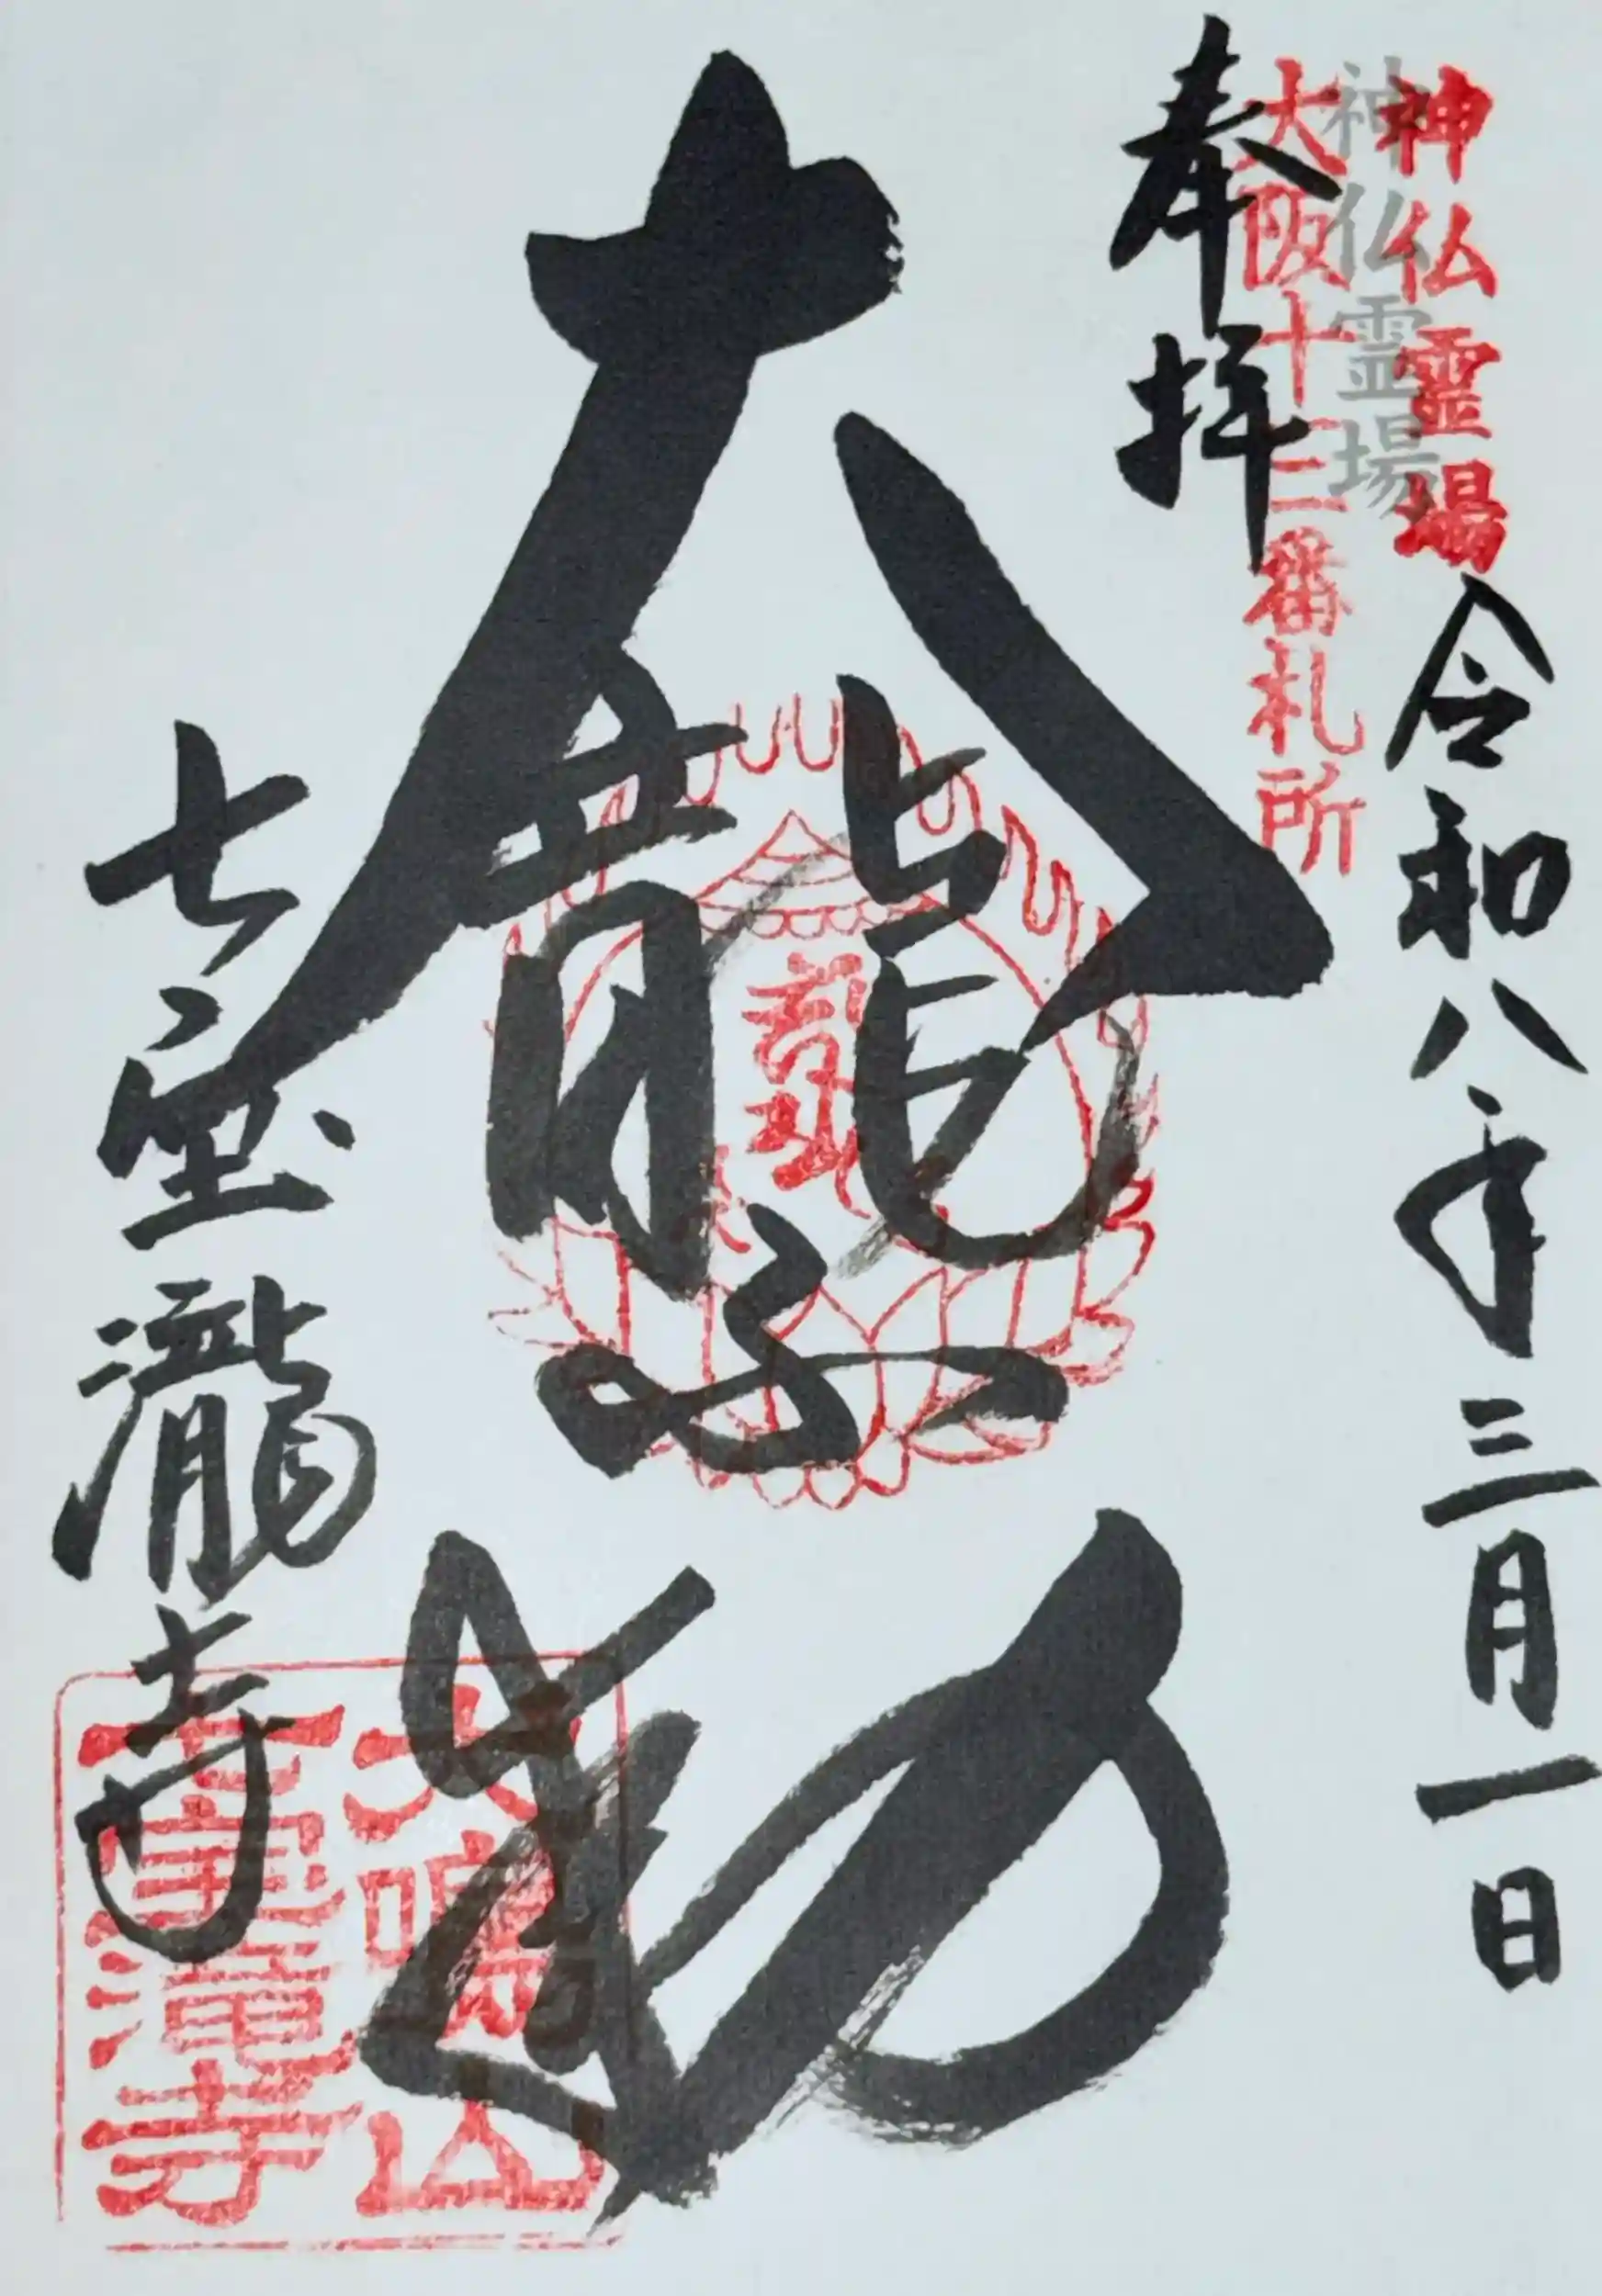 神仏霊場
神仏霊場
大阪十三番札所
奉拝
令和八年三月一日
大龍不動
七宝瀧寺
犬鳴山
七宝滝寺